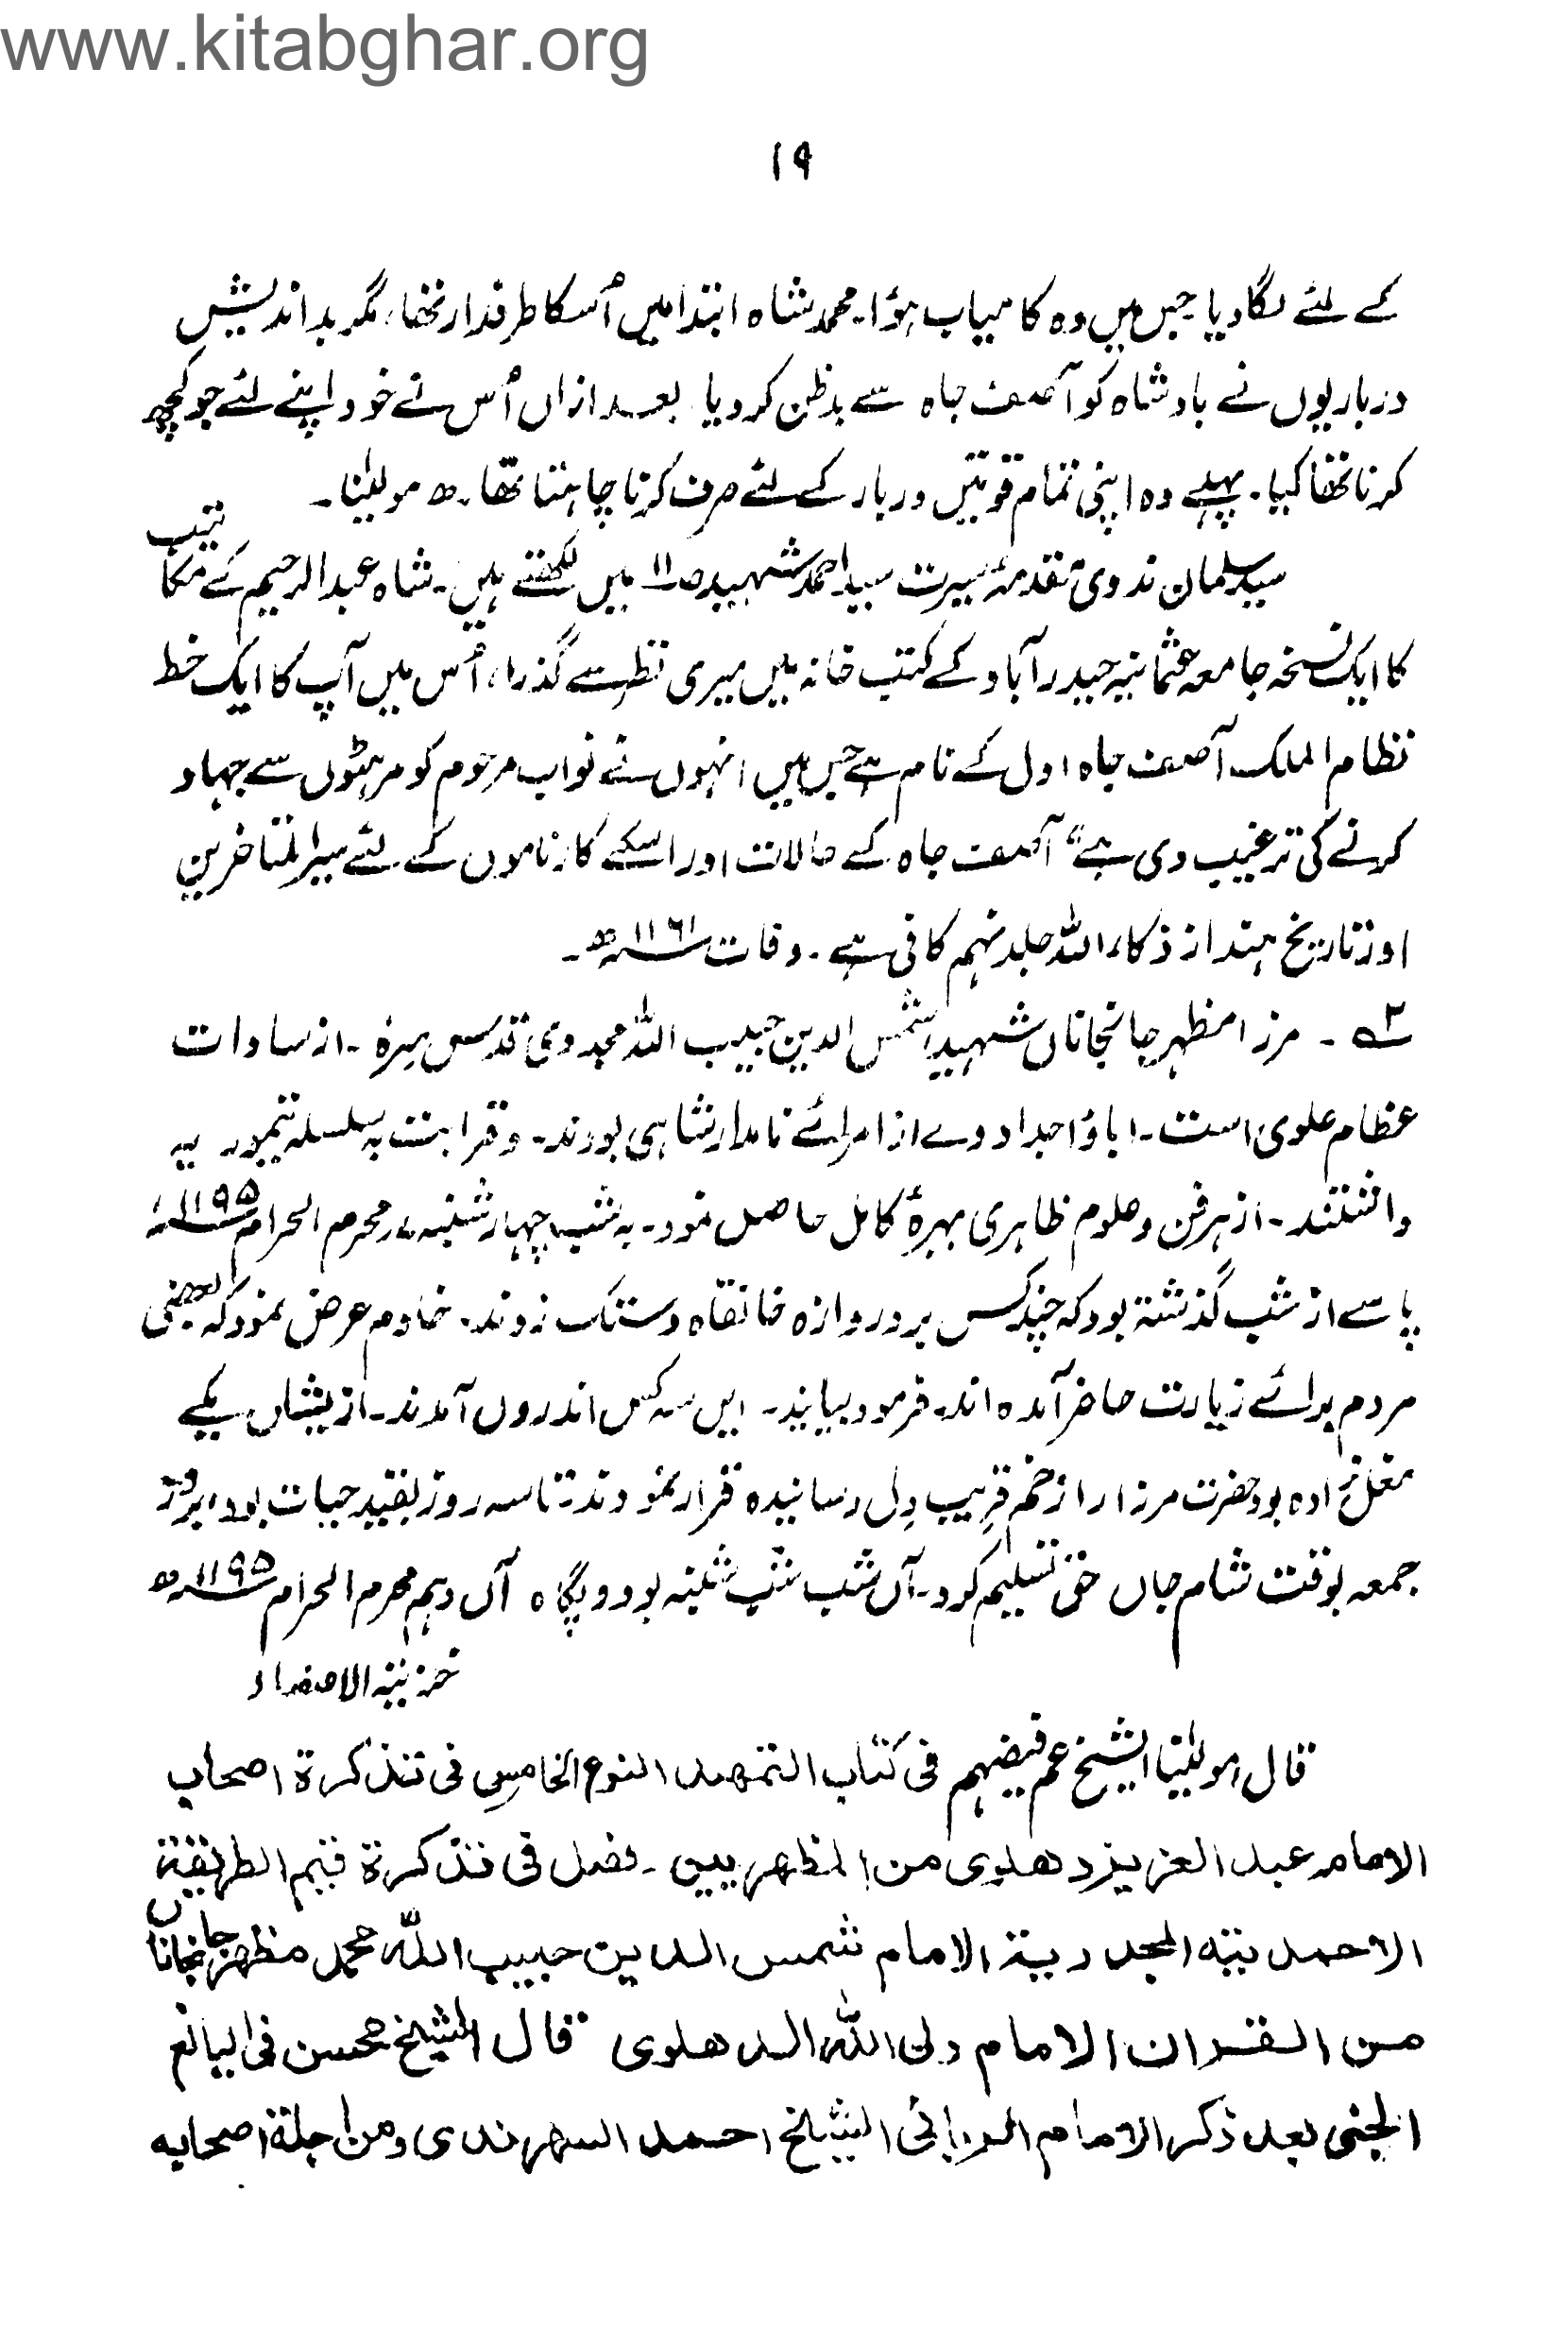 www.kitabghar.org
۱۹
کے لئے لگا دیا جس میں وہ کامیاب ہؤا۔ محمد شاہ ابتدا میں اُسکا طرفدار تھا، مگر بد اندیش
درباریوں نے بادشاہ کو آصف جاہ سے بدظن کر دیا بعد ازاں اُس نے خود اپنے لئے جو کچھ
کرنا تھا کیا۔ پہلے وہ اپنی تمام قوتیں دربار کے لئے صرف کرنا چاہتا تھا۔ ھ مولیٰنا۔
سید سلمان ندوی مقدمۂ سیرت سید احمد شہید ص۱۱ میں لکھتے ہیں۔ شاہ عبدالرحیم کے مکاتیب
کا ایک نسخہ جامعہ عثمانیہ حیدرآباد کے کتب خانہ میں میری نظر سے گذرا، اُس میں آپ کا ایک خط
نظام الملک آصف جاہ اول کے نام ہے جس میں انہوں نے نواب مرحوم کو مرہٹوں سے جہاد
کرنے کی ترغیب دی ہے" آصف جاہ کے حالات اور اسکے کارناموں کے لئے سیرالمتاخرین
اور تاریخ ہند از ذکاء اللہ جلد نہم کافی ہے۔ وفات ۱۱۶۱ھ۔
۳ ۔ مرزا مظہر جانجاناں شہید شمس الدین حبیب اللہ مجددی قدس سرہٗ ۔ از سادات
عظام علوی است۔ اباؤ اجداد وے از امرائے نامدار شاہی بودند۔ و قرابت بہ سلسلہ تیموریہ
داشتند۔ از ہر فن و علوم ظاہری بہرۂ کامل حاصل نمود۔ بہ شب چہار شنبہ ۷ محرم الحرام ۱۱۹۵ھ
پاسے از شب گذشتہ بود کہ چند کس بر دروازہ خانقاہ دستک زدند۔ خادم عرض نمود کہ بعضی
مردم برائے زیارت حاضر آمدہ اند۔ فرمود بیایند۔ ایں سہ کس اندروں آمدند۔ ازیشاں یکے
مغل زادہ بود حضرت مرزا را زخم قریب دِل رسانیدہ قرار نمودند تا سہ روز بقید حیات بود، بروز
جمعہ بوقت شام جاں حق تسلیم کرد۔ آں شب شب شنبہ بود و پگاہ آں دہم محرم الحرام ۱۱۹۵ھ
خزینۃ الاصفیاء
قال مولیٰنا الشیخ عم فیضہم فی کتاب التمہید النوع الخامس فی تذکرۃ اصحاب
الامام عبد العزیز دھلوی من المظھریین ۔ فصل فی تذکرۃ قیم الطریقۃ
الاحمدیۃ المجددیۃ الامام شمس الدین حبیب اللہ محمد مظھر جانجاناں
من القران الامام ولی اللہ الدھلوی قال الشیخ محسن فی الیانع
الجنی بعد ذکر الامام الربانی الشیخ احمد السھرندی ومن اجلۃ اصحابہ